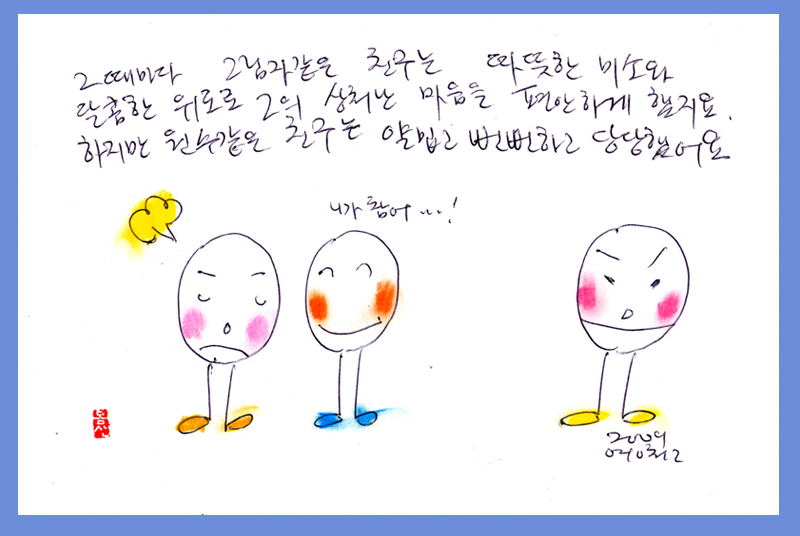 그때마다 그림자같은 친구는 따뜻한 미소와
달콤한 위로로 그의 상처난 마음을 편안하게 했지요.
하지만 원수같은 친구는 얄밉고 뻔뻔하고 당당했어요
니가 참어...!
2009